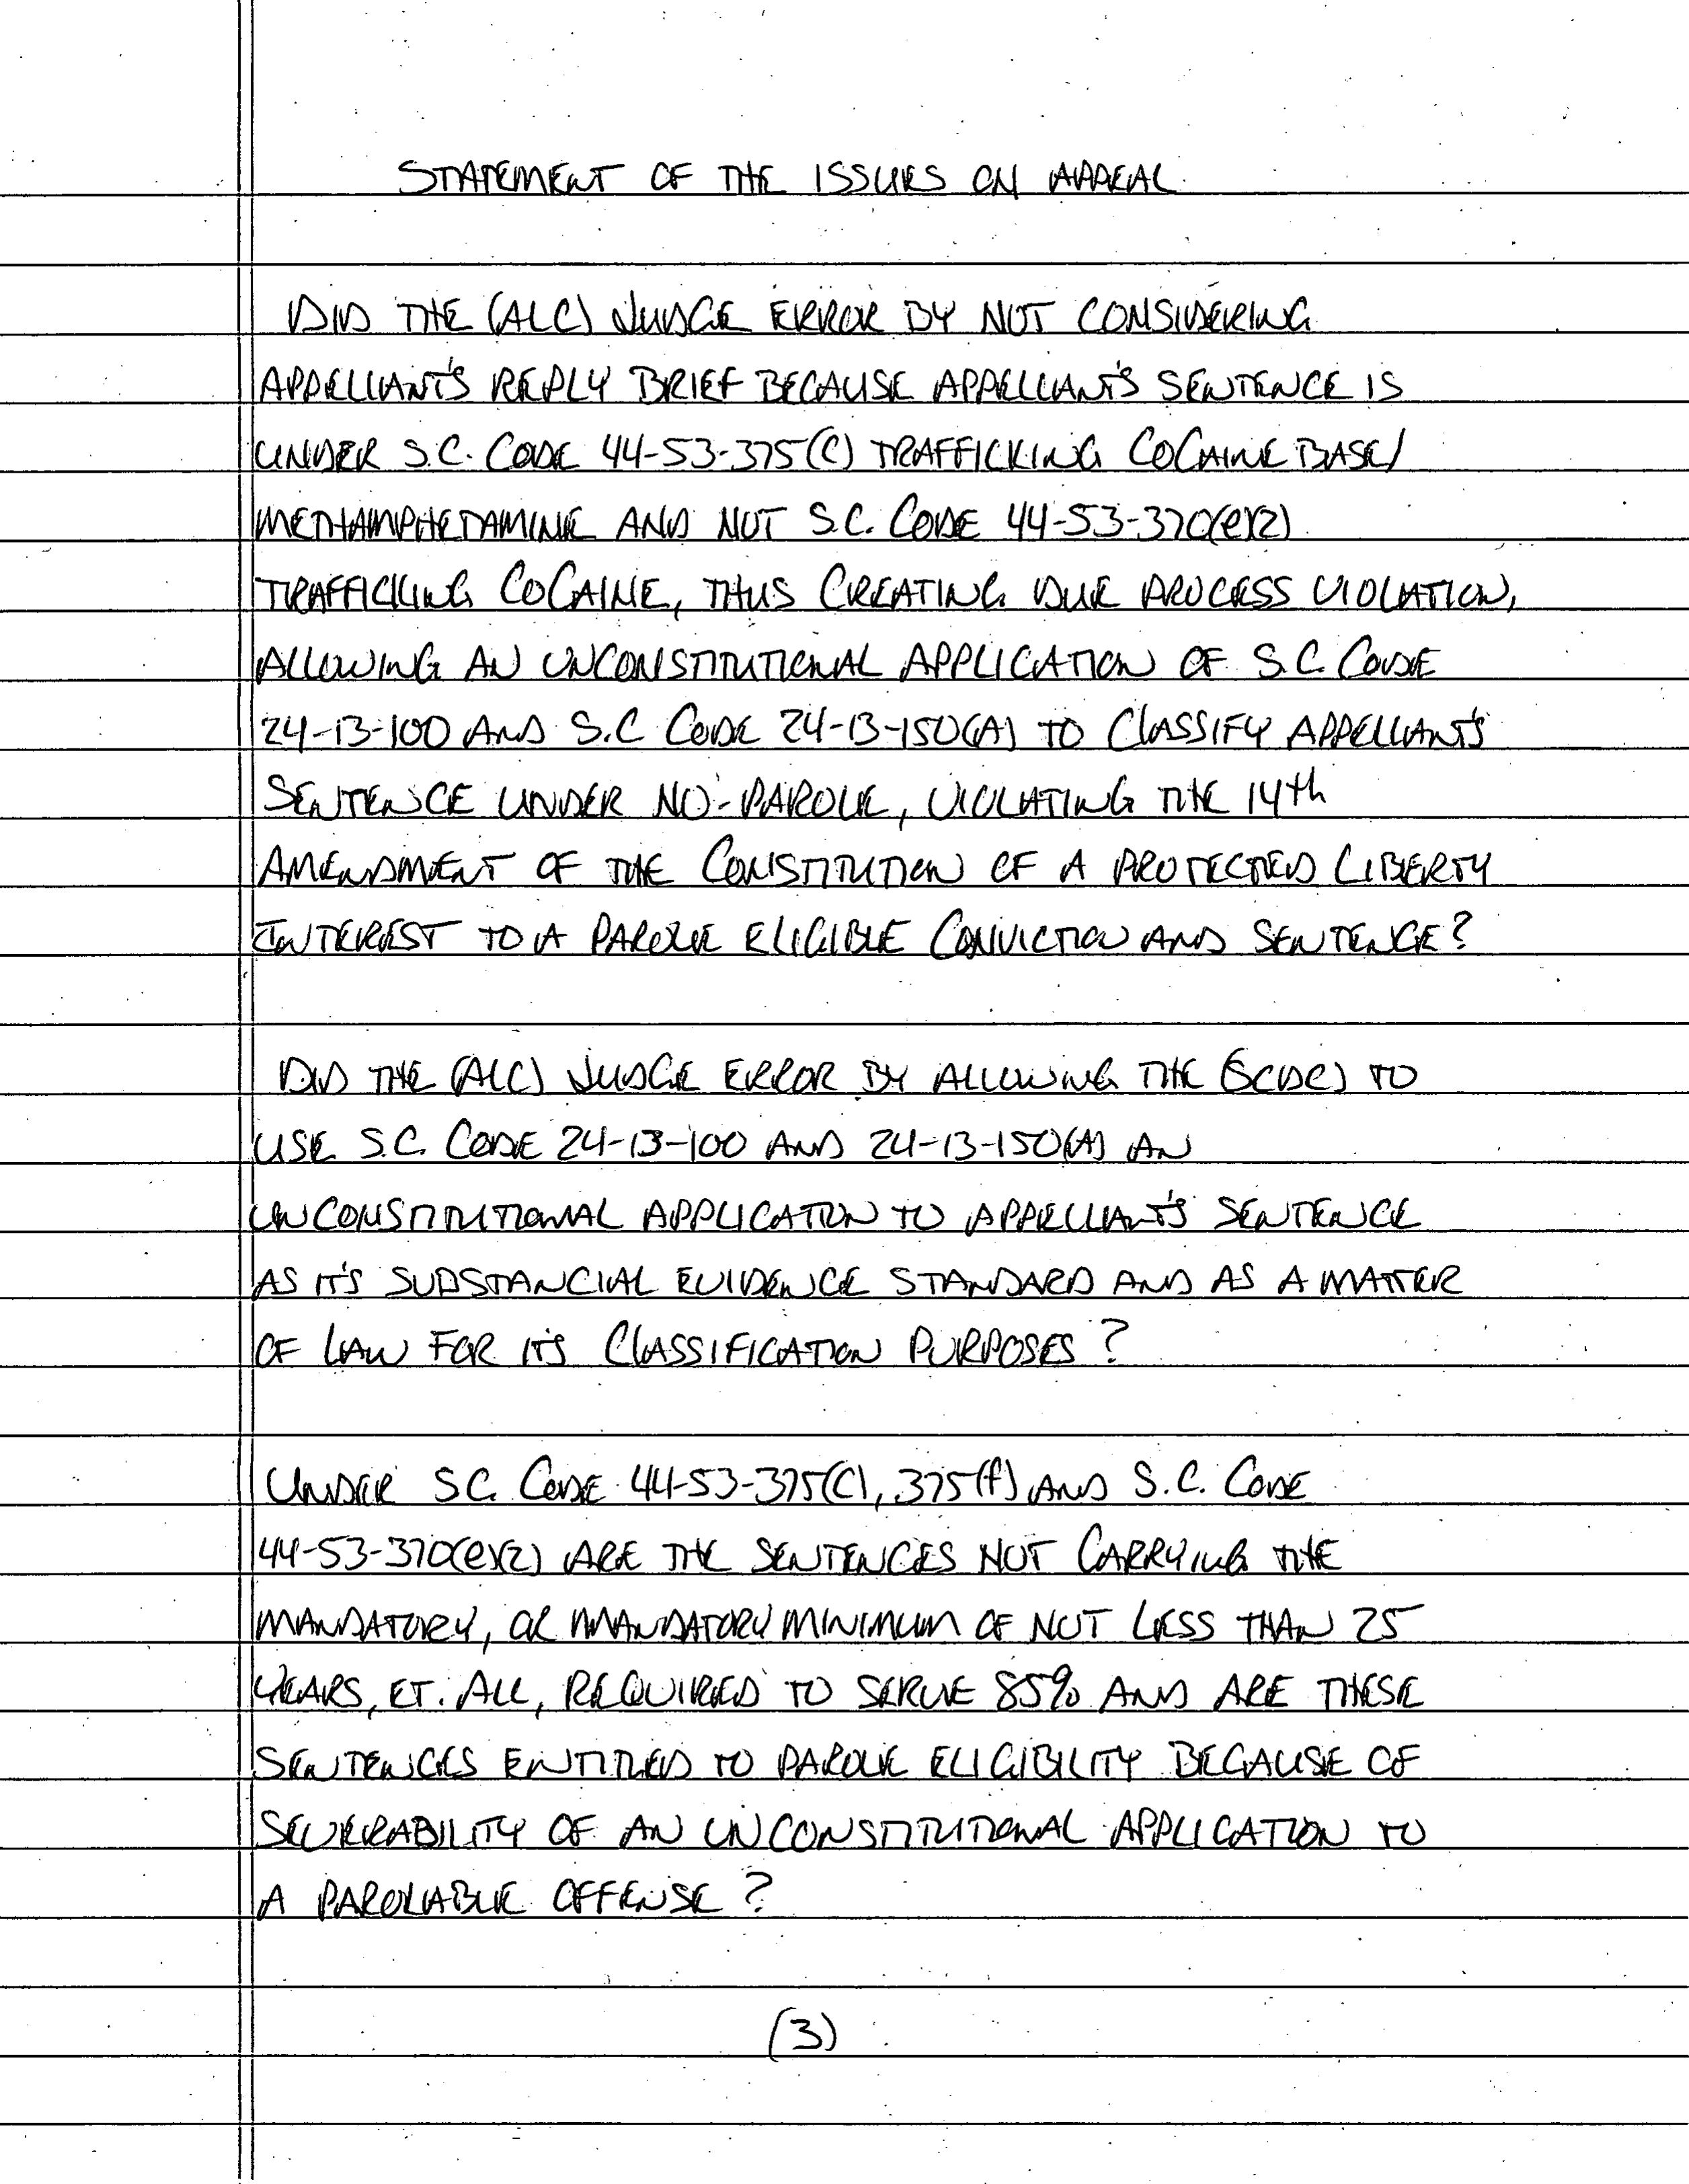 STATEMENT OF THE ISSUES ON APPEAL
DID THE (ALC) JUDGE ERROR BY NOT CONSIDERING
APPELLANT'S REPLY BRIEF BECAUSE APPELLANT'S SENTENCE IS
UNDER S.C. CODE 44-53-375(C) TRAFFICKING COCAINE BASE/
METHAMPHETAMINE AND NOT S.C. CODE 44-53-370(e)(2)
TRAFFICKING COCAINE, THUS CREATING DUE PROCESS VIOLATION,
ALLOWING AN UNCONSTITUTIONAL APPLICATION OF S.C. CODE
24-13-100 AND S.C CODE 24-13-150(A) TO CLASSIFY APPELLANT'S
SENTENCE UNDER NO-PAROLE, VIOLATING THE 14th
AMENDMENT OF THE CONSTITUTION OF A PROTECTED LIBERTY
INTEREST TO A PAROLE ELIGIBLE CONVICTION AND SENTENCE?
DID THE (ALC) JUDGE ERROR BY ALLOWING THE (SCDC) TO
USE S.C. CODE 24-13-100 AND 24-13-150(A) AN
UNCONSTITUTIONAL APPLICATION TO APPELLANT'S SENTENCE
AS IT'S SUBSTANCIAL EVIDENCE STANDARD AND AS A MATTER
OF LAW FOR IT'S CLASSIFICATION PURPOSES?
UNDER S.C. CODE 44-53-375(C), 375(f) AND S.C. CODE
44-53-370(e)(2) ARE THE SENTENCES NOT CARRYING THE
MANDATORY, OR MANDATORY MINIMUM OF NOT LESS THAN 25
YEARS, ET. ALL, REQUIRED TO SERVE 85% AND ARE THESE
SENTENCES ENTITLED TO PAROLE ELIGIBILITY BECAUSE OF
SEVERABILITY OF AN UNCONSTITUTIONAL APPLICATION TO
A PAROLABLE OFFENSE?
(3)